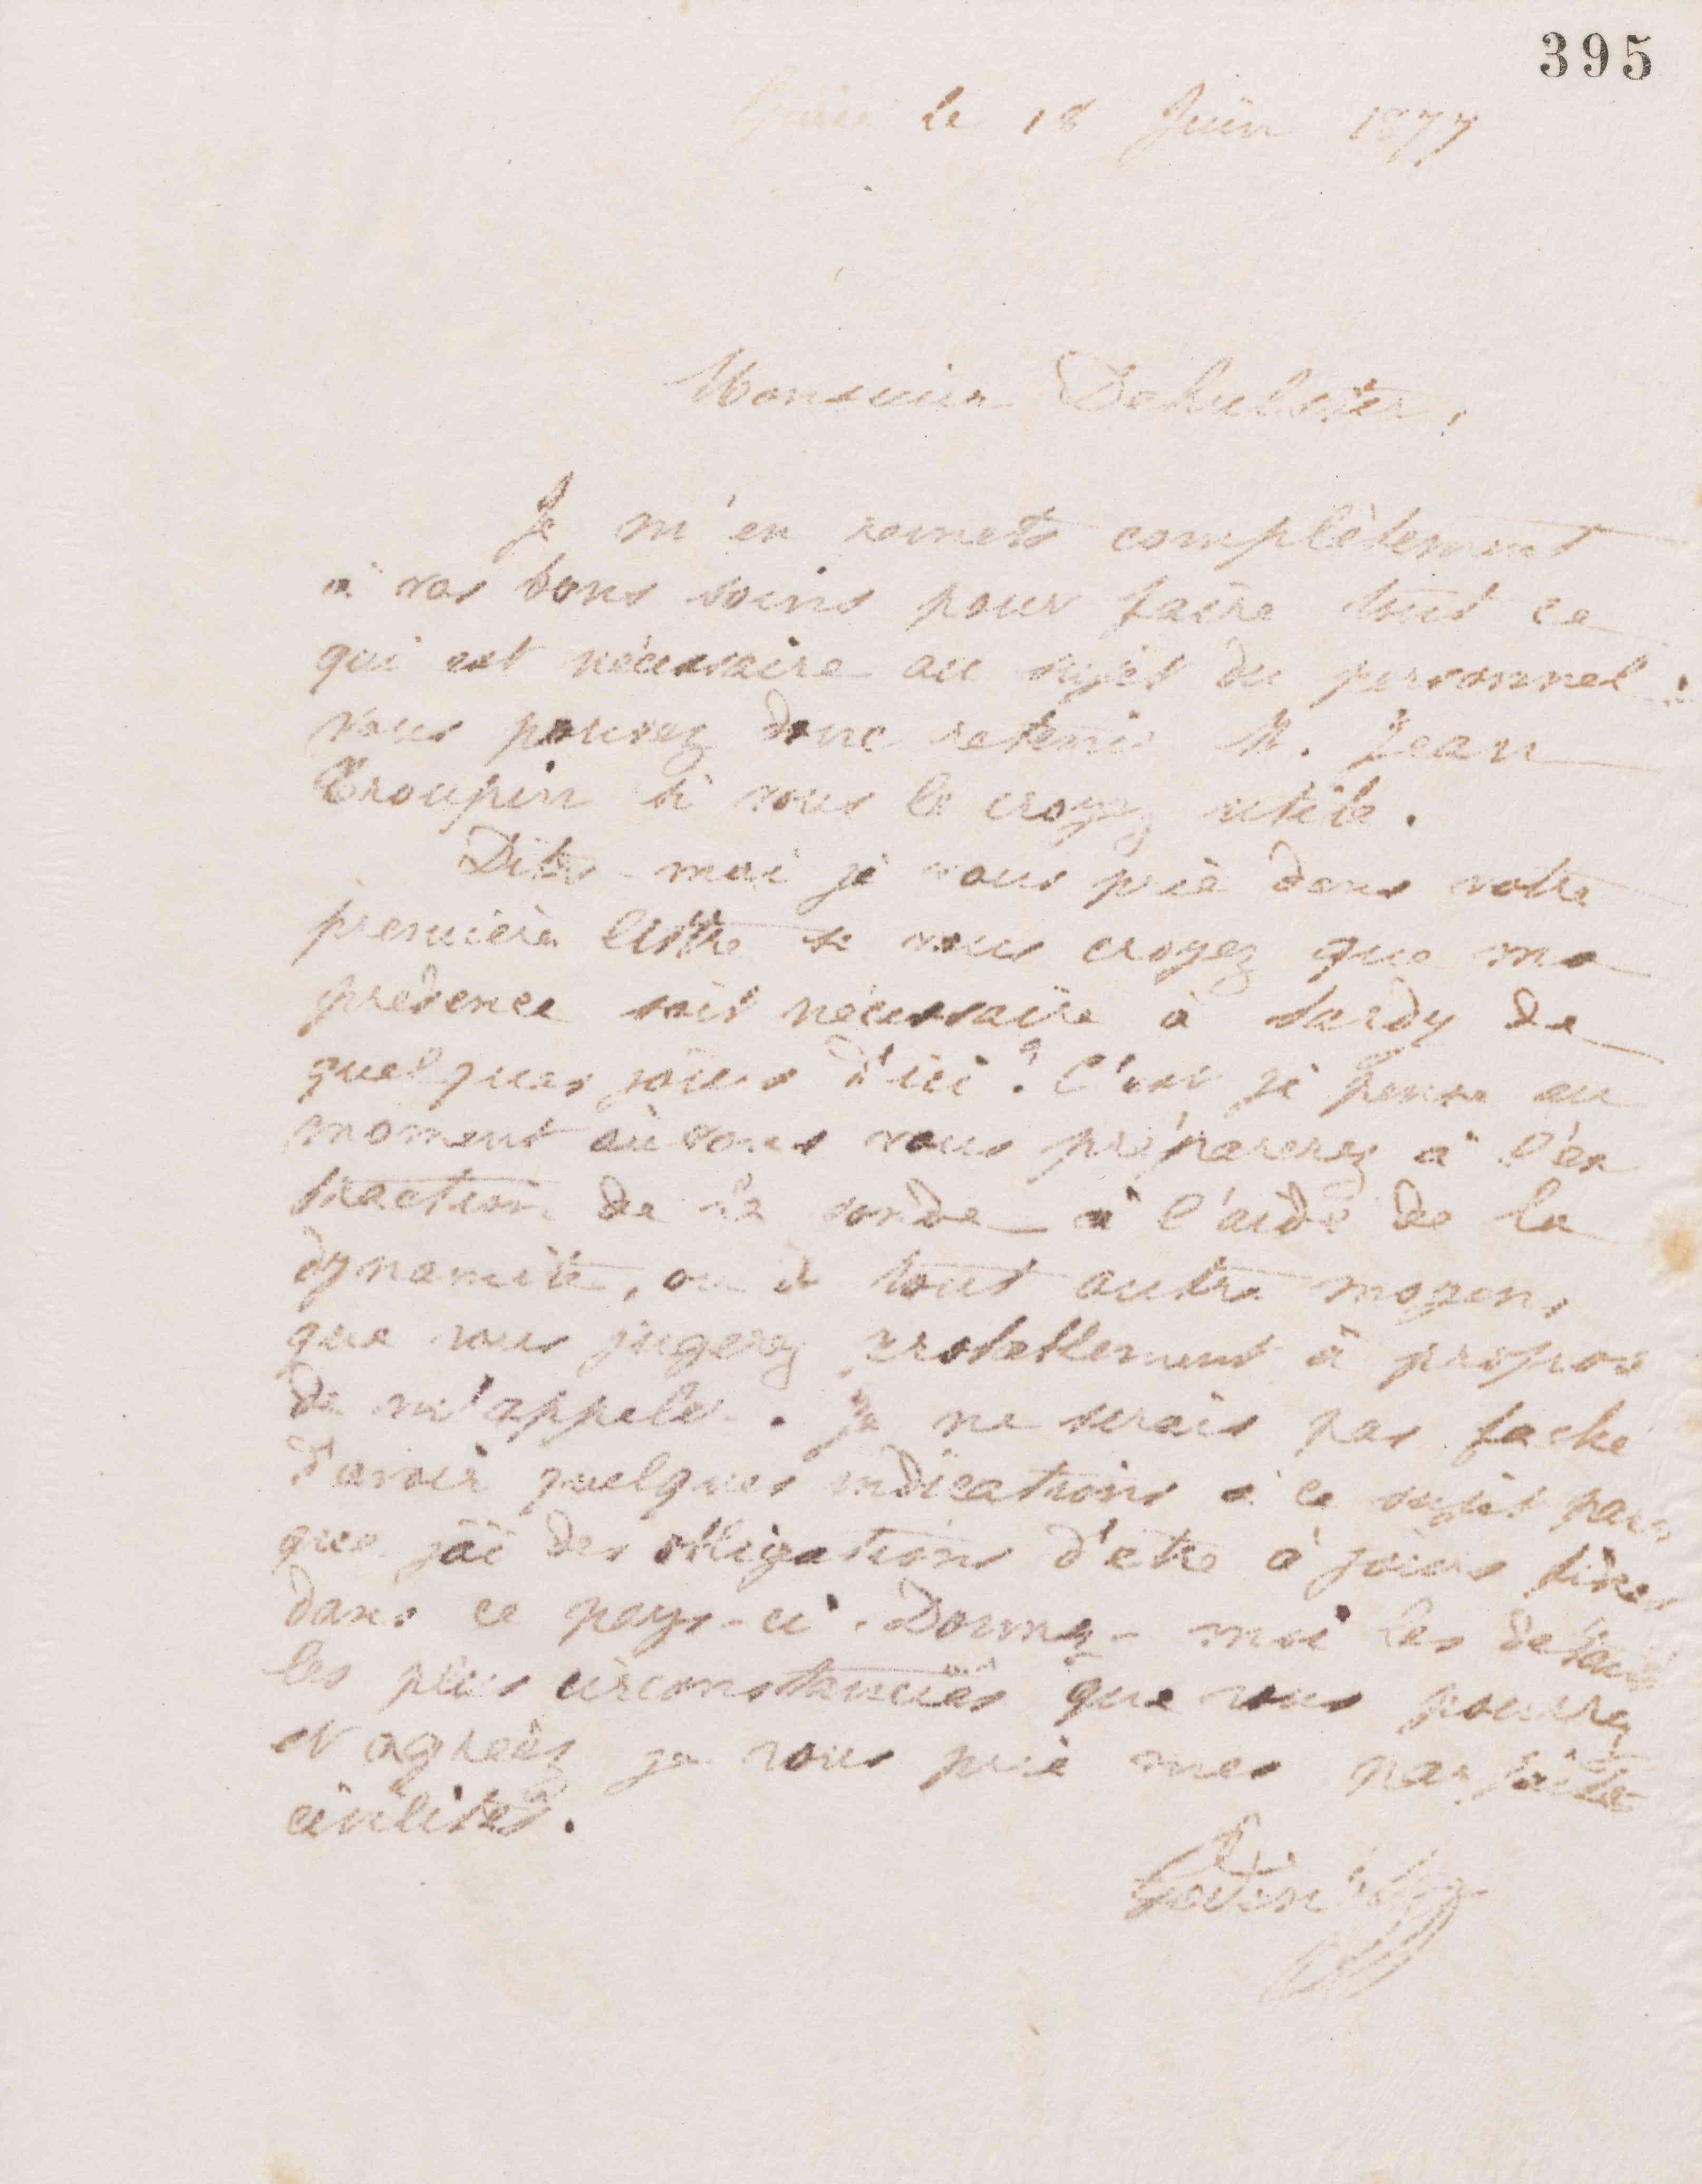 395
Guise le 18 Juin 1877
Monsieur Dehulster,
Je m'en remets complètement
à vos bons soins pour faire tout ce
qui est nécessaire au sujet du personnel :
vous pouvez donc retenir M. Jean
Troupin si vous le croyez utile.
Dites-moi je vous prie dans votre
première lettre si vous croyez que ma
présence soit nécessaire à Sardy de
quelques jours d'ici ? C'est je pense au
moment où vous vous préparerez à l'ex
traction de la sonde à l'aide de la
dynamite, ou à tout autre moyen,
que vous jugerez probablement à propos
de m'appeler. Je ne serais pas faché
d'avoir quelques indications à ce sujet parce
que j'ai des obligations d'etre à jours fixes
dans ce pays-ci. Donnez-moi les détails
les plus circonstanciés que vous pourrez
et agréez je vous prie mes parfaites
civilités.
Godin